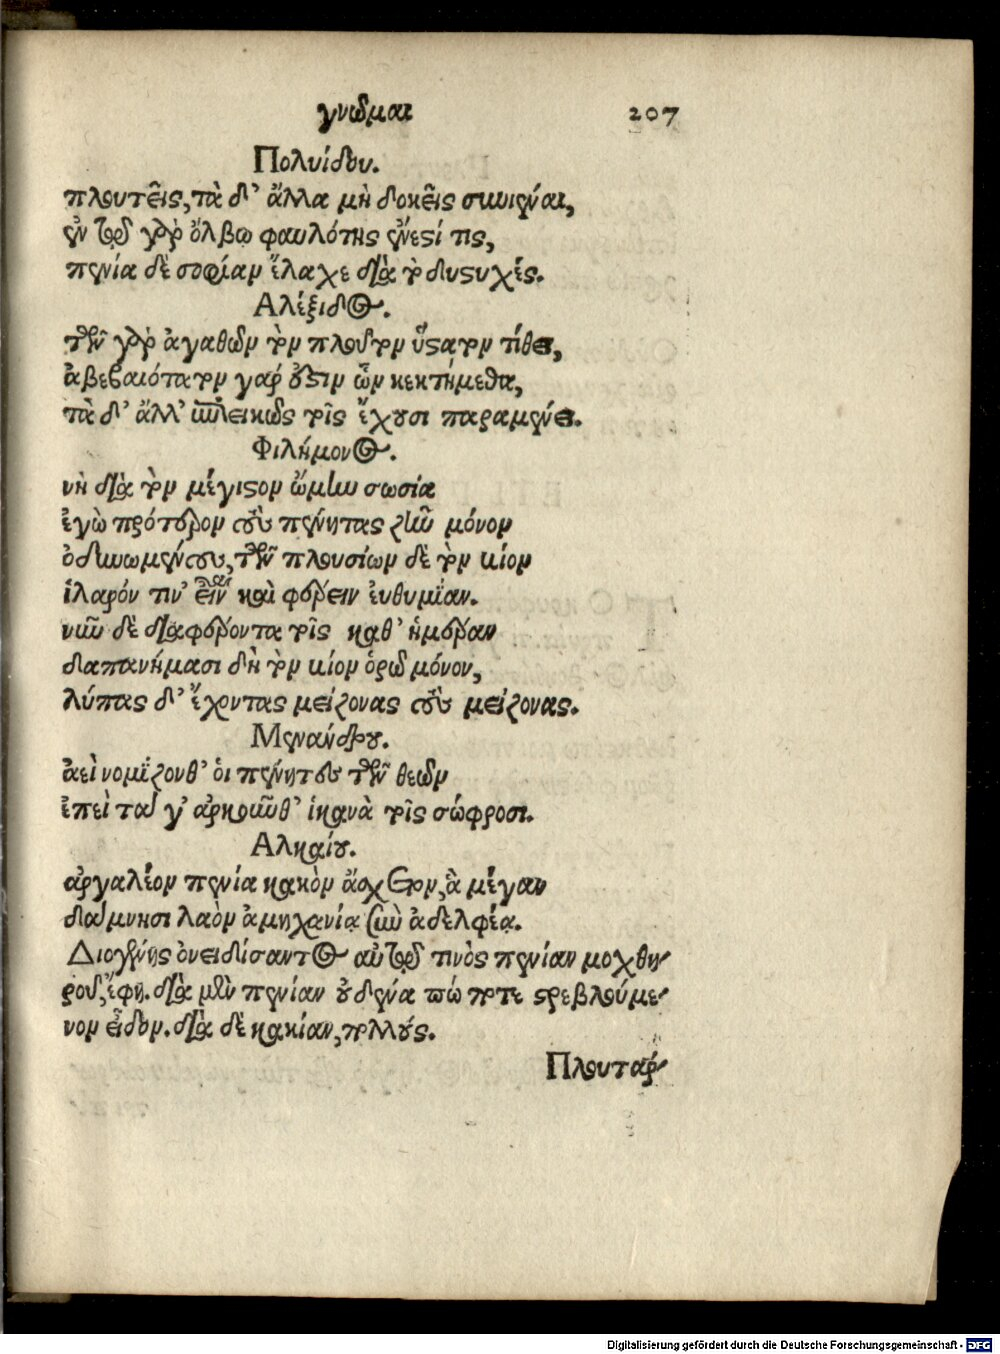 γνῶμαι 207
Πολυίδου.
πλουτεῖς, τὰ δ' ἄλλα μὴ δόκει συνιέναι,
ἐν τῷ γὰρ ὄλβῳ φαυλότης ἔνεστί τις,
πενία δὲ σοφίαν ἔλαχε διὰ τὸ δυστυχές.
Αλέξιδος.
τῶν γὰρ ἀγαθῶν τὸν πλοῦτον ὕστατον τίθει,
ἀβεβαιότατον γάρ ἐστιν ὧν κεκτήμεθα,
τὰ δ' ἄλλ' ἐπιεικῶς τοῖς ἔχουσι παραμένει.
Φιλήμονος.
νὴ διὰ τὸν μέγιστον ᾤμην σωσία
ἐγὼ πρότερον τοὺς πένητας ζῆν μόνον
ὀδυνωμένους, τῶν πλουσίων δὲ τὸν βίον
ἱλαρόν τιν' εἶναι καὶ φέρειν εὐθυμίαν.
νῦν δὲ διαφέροντα τοῖς καθ' ἡμέραν
δαπανήμασι δὴ τὸν βίον ὁρῶ μόνον,
λύπας δ' ἔχοντας μείζονας τοὺς μείζονας.
Μενάνδρου.
ἀεὶ νομίζονθ' οἱ πένητες τῶν θεῶν
ἐπεὶ ταῦ γ' ἀρκοῦνθ' ἱκανὰ τοῖς σώφροσι.
Αλκαίου.
ἀργαλέον πενία κακὸν ἄσχετον, ἃ μέγαν
δαμνησι λαὸν ἀμηχανίᾳ σὺν ἀδελφέᾳ.
Διογένης ὀνειδίσαντος αὐτῷ τινὸς πενίαν μοχθη
ροῦ, ἔφη. διὰ μὲν πενίαν οὐδένα πώποτε στρεβλούμε
νον εἶδον. διὰ δὲ κακίαν, πολλούς.
Πλουτάρ
Digitalisierung gefördert durch die Deutsche Forschungsgemeinschaft - DFG